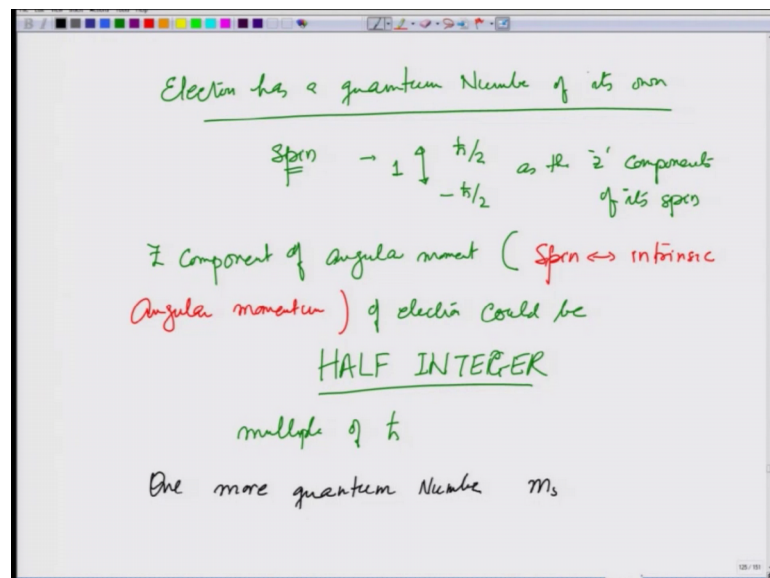 Electron has a quantum Number of its own
Spin → 1 ↕ ħ/2 as the 'z' components
-ħ/2 of its spin
Z component of angular moment ( Spin ↔ intrinsic
Angular momentum ) of electron could be
HALF INTEGER
multiple of ħ
One more quantum Number ms
125 / 151